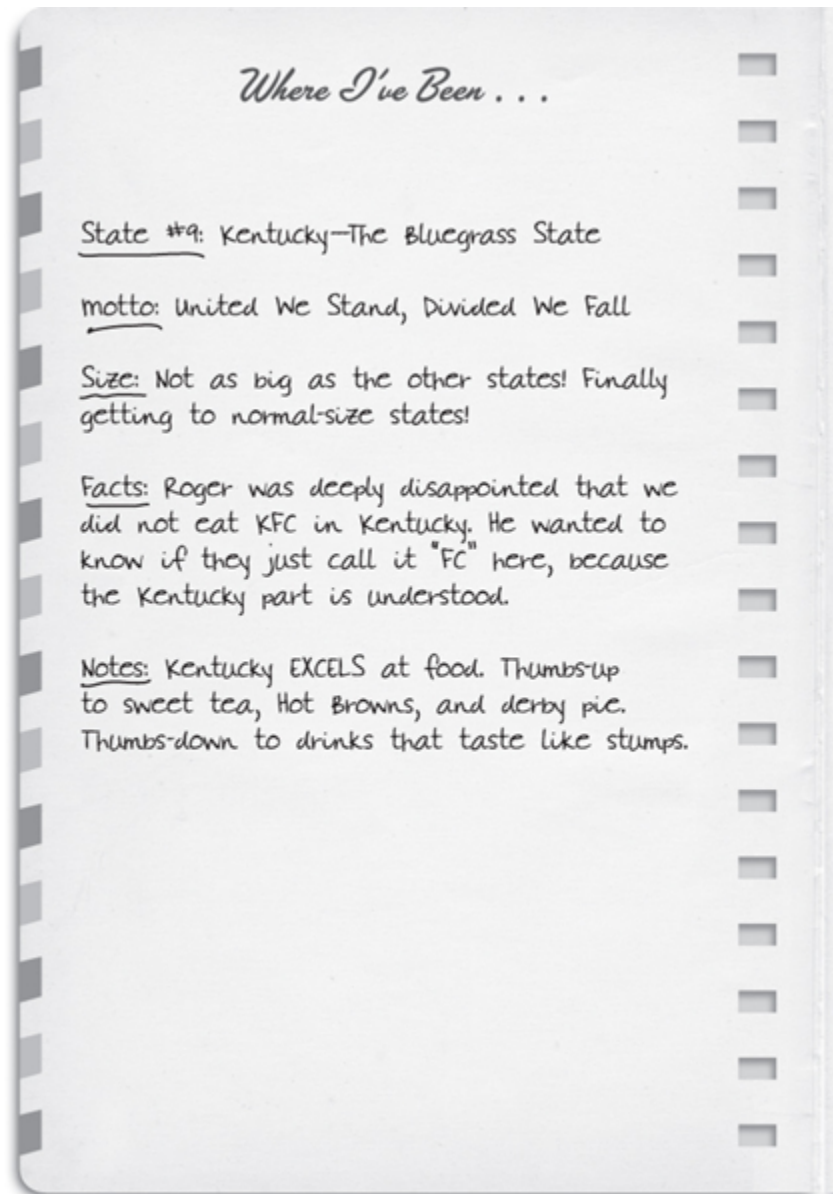 Where I've Been . . .
State #9: Kentucky—The Bluegrass State
Motto: United We Stand, Divided We Fall
Size: Not as big as the other states! Finally
getting to normal-size states!
Facts: Roger was deeply disappointed that we
did not eat KFC in Kentucky. He wanted to
know if they just call it "FC" here, because
the Kentucky part is understood.
Notes: Kentucky EXCELS at food. Thumbs-up
to sweet tea, Hot Browns, and derby pie.
Thumbs-down to drinks that taste like stumps.